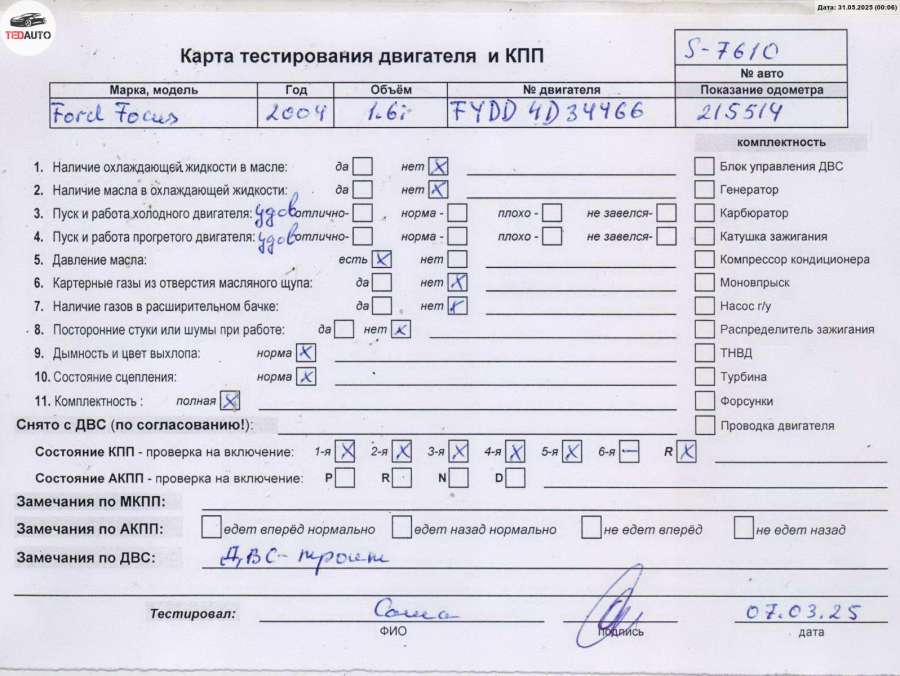 Дата: 31.05.2025 (00:06)
TEDAUTO
Карта тестирования двигателя и КПП
S-7610
№ авто
Марка, модель Год Объём № двигателя Показание одометра
Ford Focus 2004 1.6i FYDD 4D34466 215514
комплектность
1. Наличие охлаждающей жидкости в масле: да нет X
Блок управления ДВС
2. Наличие масла в охлаждающей жидкости: да нет X
Генератор
3. Пуск и работа холодного двигателя: удов отлично- норма - плохо - не завелся-
Карбюратор
4. Пуск и работа прогретого двигателя: удов отлично- норма - плохо - не завелся-
Катушка зажигания
5. Давление масла: есть X нет
Компрессор кондиционера
6. Картерные газы из отверстия масляного щупа: да нет X
Моновпрыск
7. Наличие газов в расширительном бачке: да нет X
Насос г/у
8. Посторонние стуки или шумы при работе: да нет X
Распределитель зажигания
9. Дымность и цвет выхлопа: норма X
ТНВД
10. Состояние сцепления: норма X
Турбина
11. Комплектность : полная X
Форсунки
Снято с ДВС (по согласованию!):
Проводка двигателя
Состояние КПП - проверка на включение: 1-я X 2-я X 3-я X 4-я X 5-я X 6-я — R X
Состояние АКПП - проверка на включение: P R N D
Замечания по МКПП:
Замечания по АКПП: едет вперёд нормально едет назад нормально не едет вперёд не едет назад
Замечания по ДВС: ДВС- троит
Тестировал: Саша 07.03.25
ФИО подпись дата